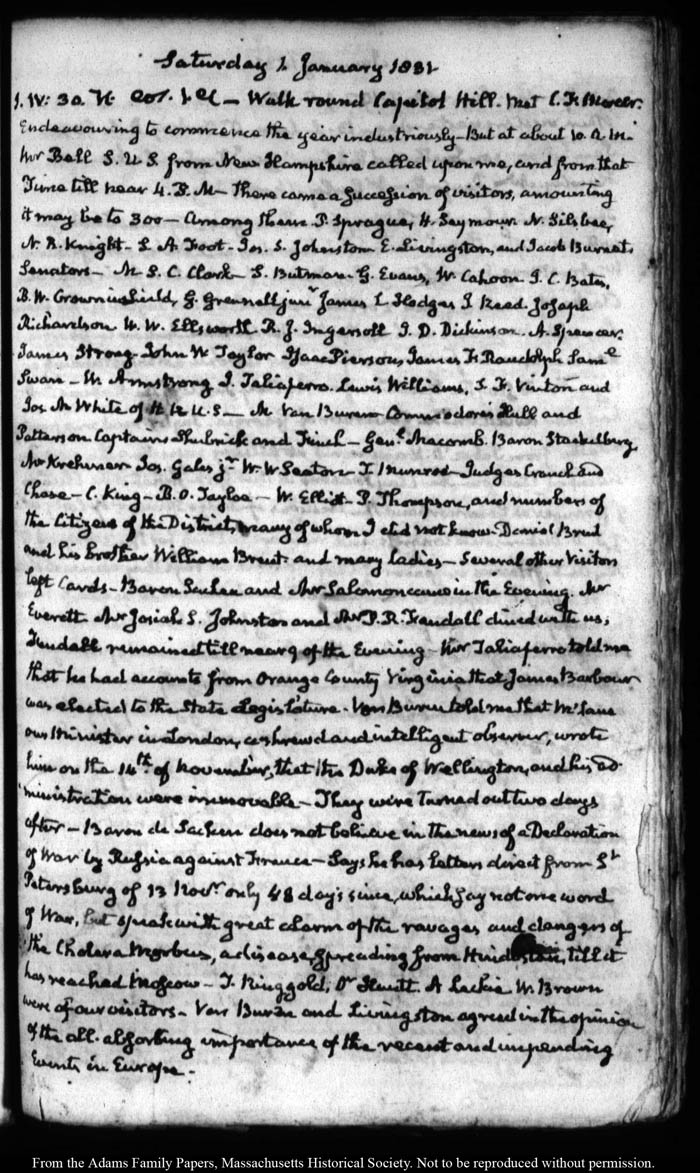 Saturday 1. January 1831
Walk round Capitol Hill. Met C. F. Mercer.
Endeavouring to commence the year industriously — But at about 10. A. M.
Mr Bell S. U S from New Hampshire called upon me, and from that
Time till near 4. P. M — There came a succession of visitors, amounting
it may be to 300 — Among them P. Sprague, H. Seymour. N. Silsbee,
N. R. Knight — S. A Foot — Jos. S. Johnston E. Livingston, and Jacob Burnet.
Senators — M S. C. Clark — S. Butman. G. Evans, W. Cahoon I. C. Bates,
B. W. Crowninshield, G. Grennell junr James L Hodges J Reed. Joseph
Richardson W. W. Ellsworth. R. J. Ingersoll J. D. Dickinson. A. Spencer.
James Strong. John W Taylor Isaac Pierson, James F. Randolph Saml
Swan — W Armstrong J. Taliaferro. Lewis Williams, S. F. Vinton and
Jos. M White of H R U. S — M Van Buren Commodores Hull and
Patterson Captains Shubrick and Finch — Genl Macomb. Baron Stackelberg
Mr Krehmer Jos. Gales jr W. W Seaton T. Munroe — Judges Cranch and
Chase — C. King — B. O. Tayloe — W. Elliot P. Thompson, and numbers of
the Citizens of the District, many of whom I did not know — Daniel Brent
and his brother William Brent. and many Ladies — Several other Visitors
left Cards — Baron Sacken and Mr Salomon came in the Evening. Mr
Everett Mr Josiah S. Johnston and Mr P. R. Fendall dined with us;
Fendall remained till near 9 of the Evening — Mr Taliaferro told me
that he had accounts from Orange County Virginia that James Barbour
was elected to the State Legislature. Van Buren told me that McLane
our Minister in London, a shrewd and intelligent observer, wrote
him on the 14th of November, that the Duke of Wellington, and his ad-
ministration were immovable — They were turned out two days
after — Baron de Sacken does not believe in the news of a Declaration
of War by Russia against France — Says he has letters direct from St
Petersburg of 13 Novr only 48 days since, which say not one word
of War, but speak with great alarm of the ravages and dangers of
the Cholera Morbus, a disease spreading from Hindostan, till it
has reached Moscow — T. Ringgold, Dr Huntt A Lackie W. Brown
were of our visitors — Van Buren and Livingston agreed in the opinion
of the all-absorbing importance of the recent and impending
Events in Europe.
From the Adams Family Papers, Massachusetts Historical Society. Not to be reproduced without permission.